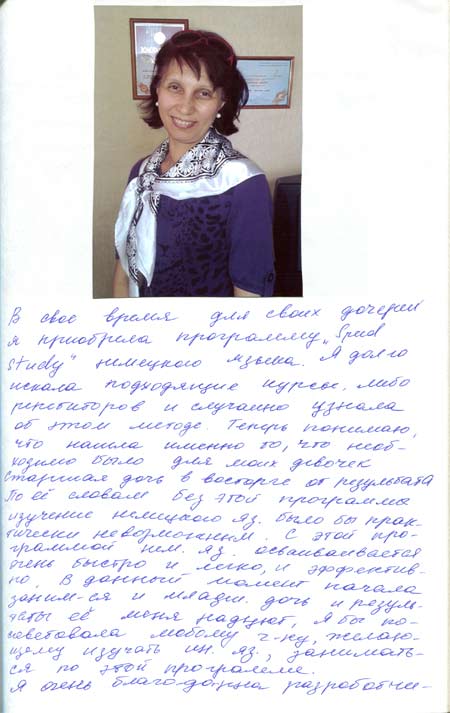 В свое время для своих дочерей
я приобрела программу „Speed
Study" немецкого языка. Я долго
искала подходящие курсы, либо
репетиторов и случайно узнала
об этом методе. Теперь понимаю,
что нашла именно то, что необ-
ходимо было для моих девочек
Старшая дочь в восторге от результата
По её словам без этой программы
изучение немецкого яз. было бы прак-
тически невозможным. С этой про-
граммой нем. яз. осваивается
очень быстро и легко, и эффектив-
но. В данный момент начала
заним-ся и младш. дочь и резуль-
таты её меня радуют, Я бы по-
советовала любому ч-ку, желаю-
щему изучать ин. яз., занимать-
ся по этой программе.
Я очень благо-дарна разработчи-